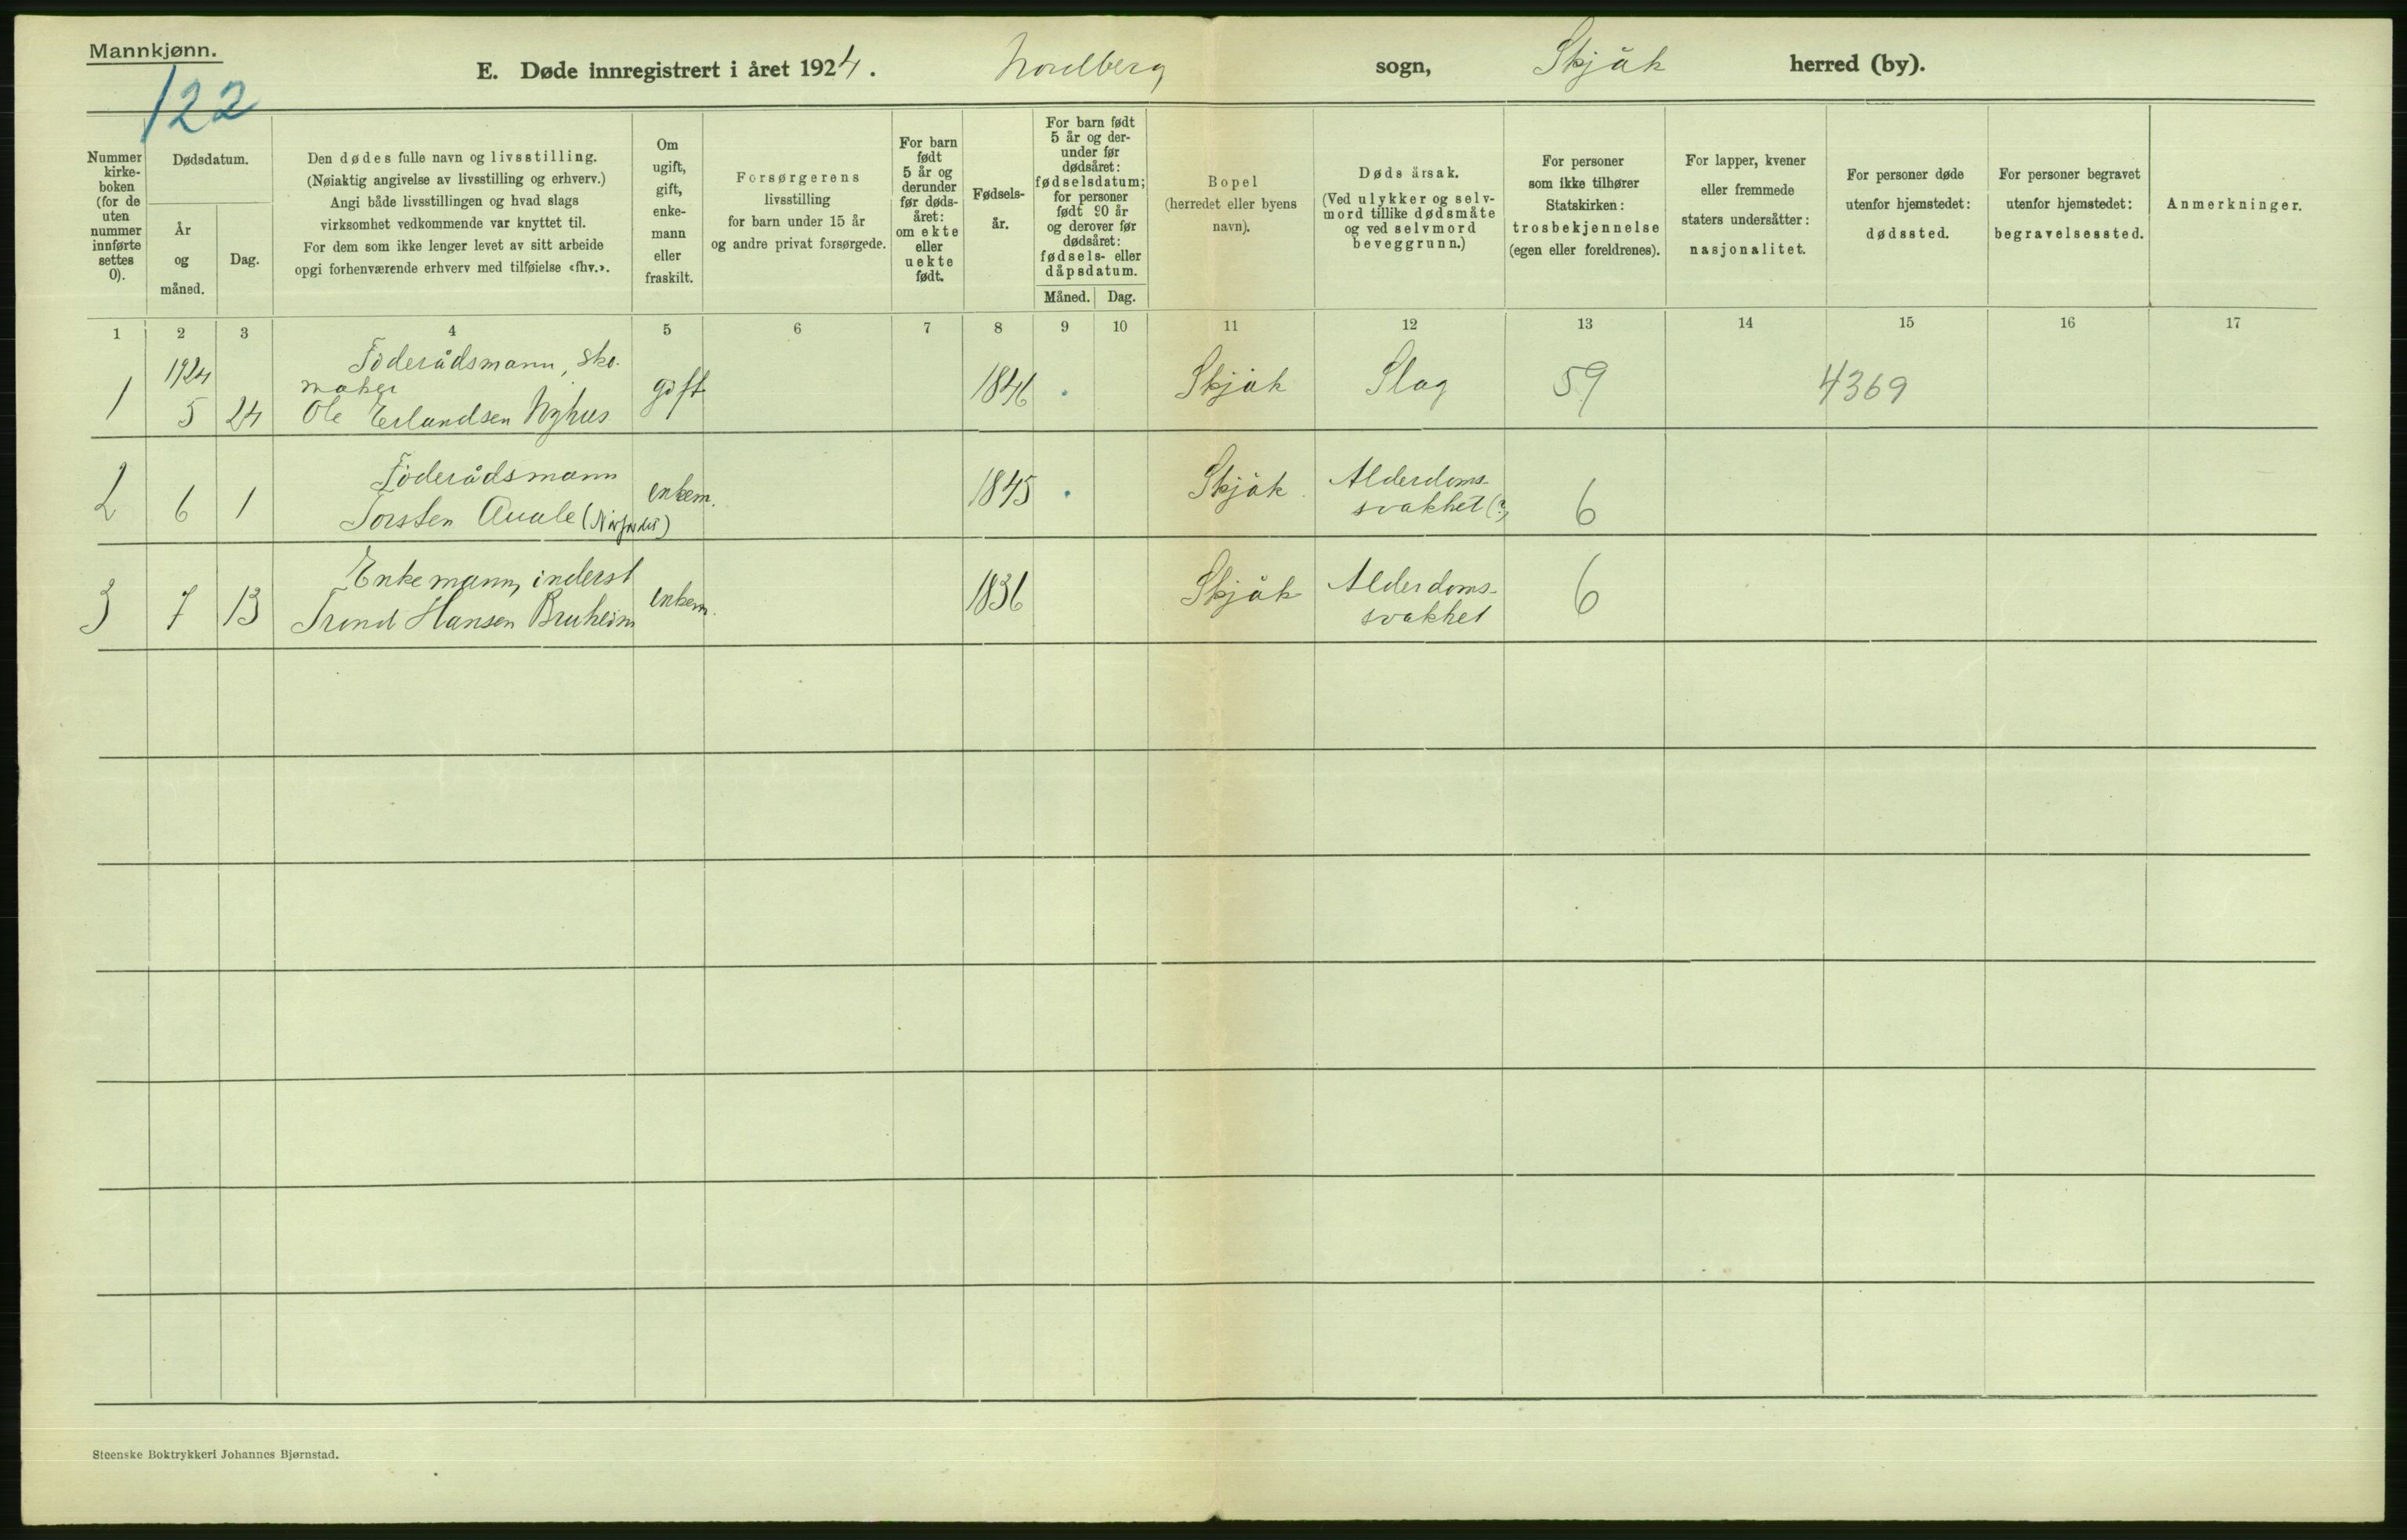 Mannkjønn.
122
E. Døde innregistrert i året 1924. Nordberg sogn, Skjåk herred (by).
Nummer
kirke-
boken
(for de
uten
nummer
innførte
settes
0).
Dødsdatum.
År
og
måned.
Dag.
Den dødes fulle navn og livsstilling.
(Nøiaktig angivelse av livsstilling og erhverv.)
Angi både livsstillingen og hvad slags
virksomhet vedkommende var knyttet til.
For dem som ikke lenger levet av sitt arbeide
opgi forhenværende erhverv med tilføielse «fhv.».
Om
ugift,
gift,
enke-
mann
eller
fraskilt.
Forsørgerens
livsstilling
for barn under 15 år
og andre privat forsørgede.
For barn
født
5 år og
derunder
før døds-
året:
om ekte
eller
uekte
født.
Fødsels-
år.
For barn født
5 år og der-
under før
dødsåret:
fødselsdatum;
for personer
født 90 år
og derover før
dødsåret:
fødsels- eller
dåpsdatum.
Måned. Dag.
Bopel
(herredet eller byens
navn).
Dødsårsak.
(Ved ulykker og selv-
mord tillike dødsmåte
og ved selvmord
beveggrunn.)
For personer
som ikke tilhører
Statskirken:
trosbekjennelse
(egen eller foreldrenes).
For lapper, kvener
eller fremmede
staters undersåtter:
nasjonalitet.
For personer døde
utenfor hjemstedet:
dødssted.
For personer begravet
utenfor hjemstedet:
begravelsessted.
Anmerkninger.
1 2 3 4 5 6 7 8 9 10 11 12 13 14 15 16 17
1924 Föderådsmann, sko-
maker
1 5 24 Ole Erlandsen Nyhus gift 1846 Skjåk Slag 59 4369
Föderådsmann
2 6 1 Torsten Auale enkem. 1845 Skjåk Alderdoms-
svakhet (?)
6
Enkemann, inderst
3 7 13 Trond Hansen Bruheim enkem. 1836 Skjåk Alderdoms-
svakhet
6
Steenske Boktrykkeri Johannes Bjørnstad.